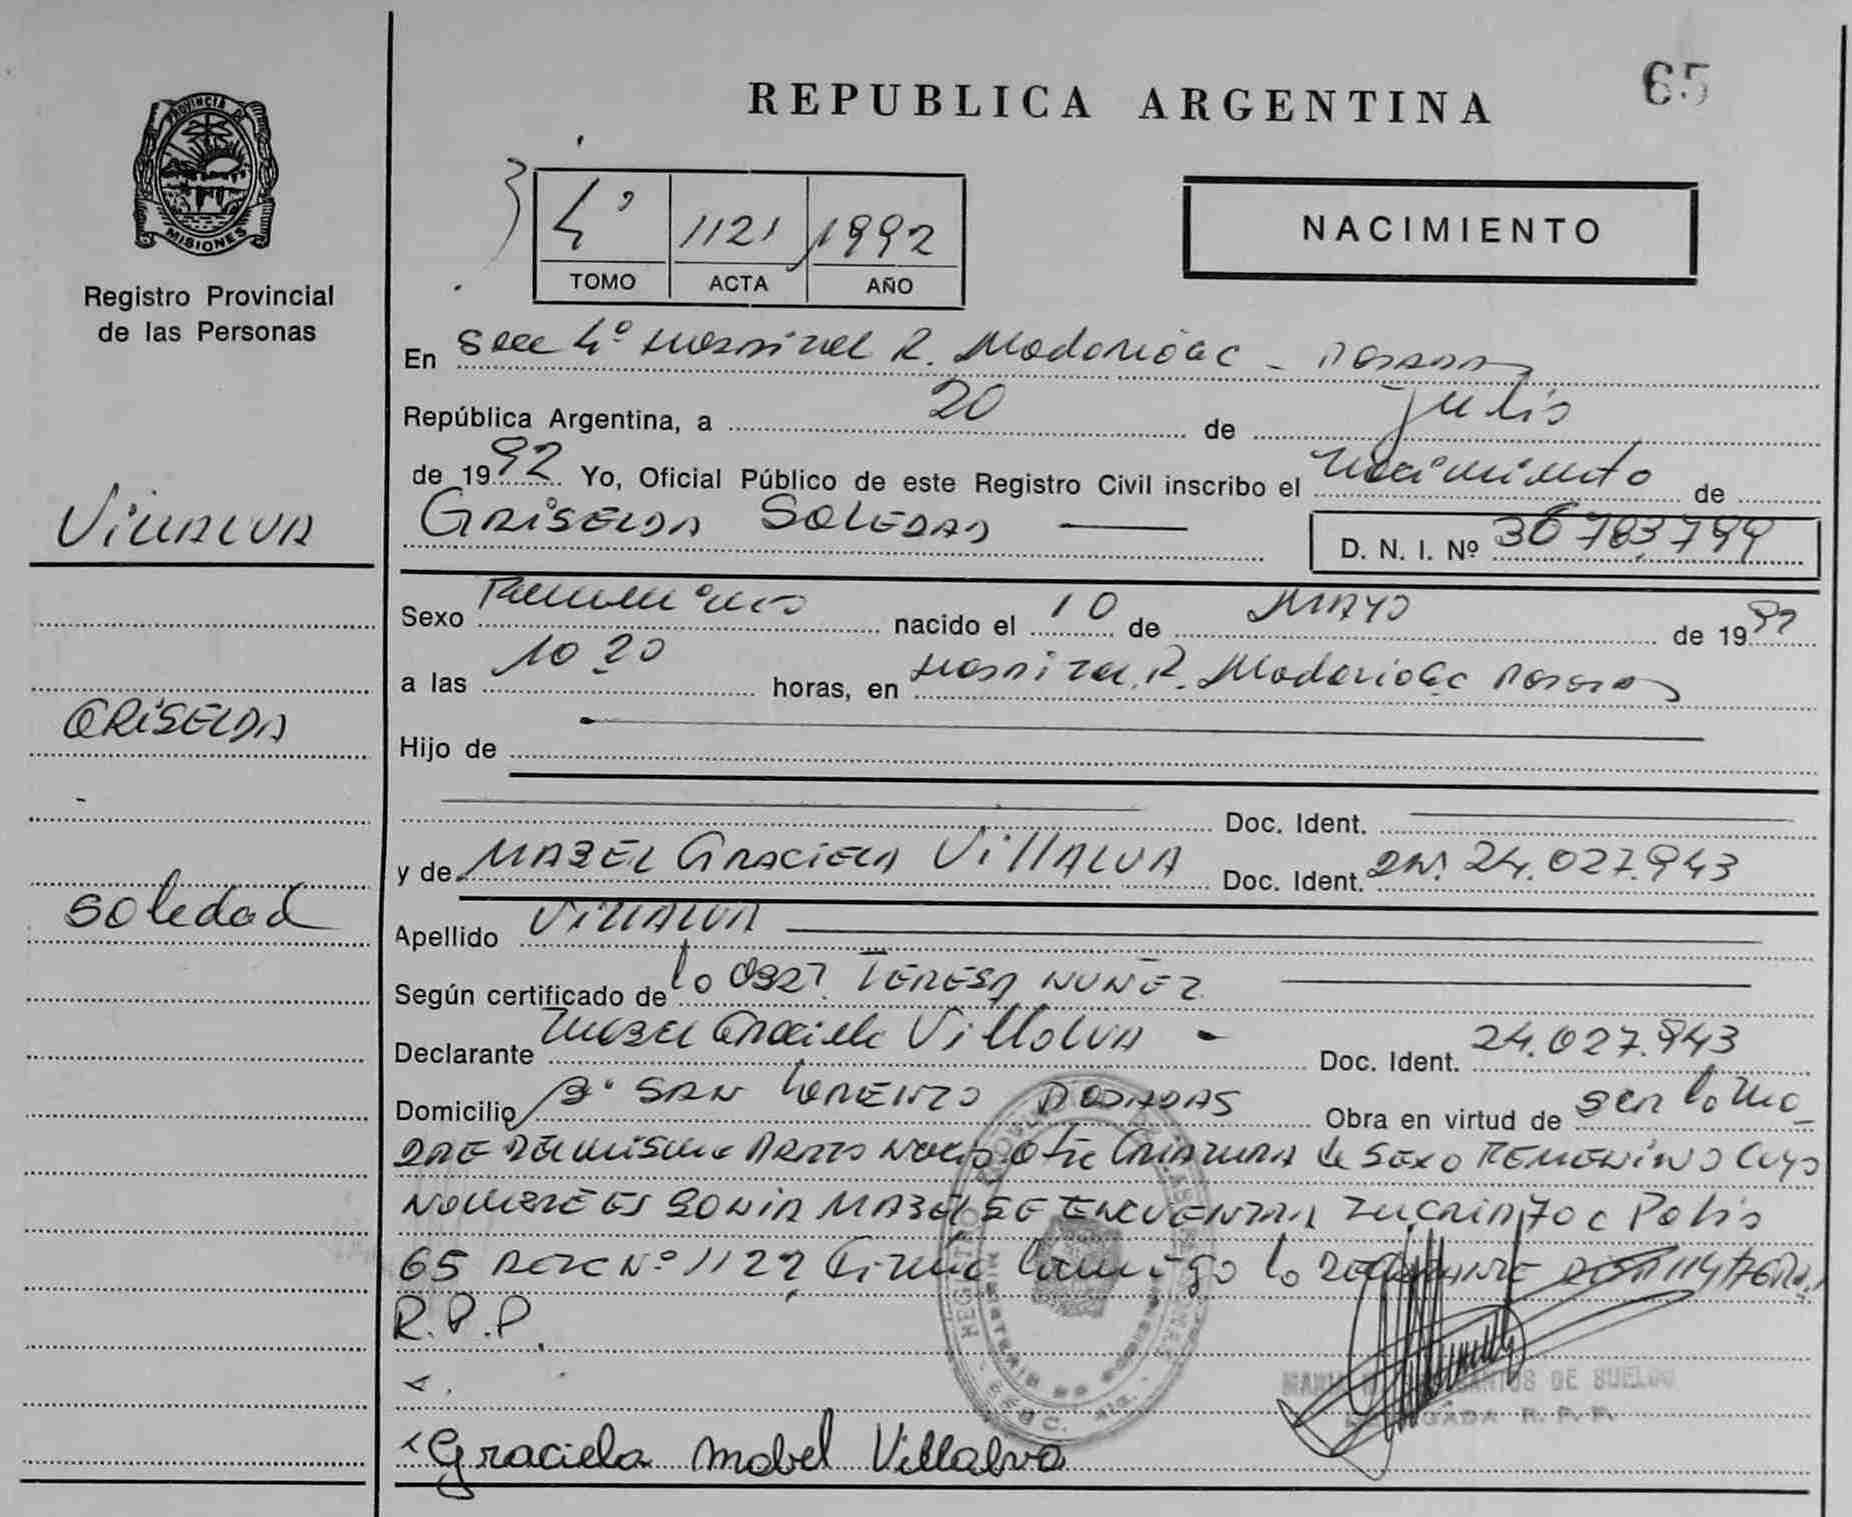 65
REPUBLICA ARGENTINA
PROVINCIA DE
MISIONES
Registro Provincial
de las Personas
4º 1121 1992
TOMO ACTA AÑO
NACIMIENTO
En Secc 4º Hospital R. Madariaga - Posadas
República Argentina, a 20 de Julio
de 1992 Yo, Oficial Público de este Registro Civil inscribo el Nacimiento de
GRISELDA SOLEDAD
D. N. I. Nº
VILLALVA
Sexo Femenino nacido el 10 de MAYO de 1992
a las 10 20 horas, en Hospital R. Madariaga Posadas
GRISELDA
Hijo de
Doc. Ident.
y de MABEL GRACIELA VILLALVA Doc. Ident. DNI 24.027.943
Soledad
Apellido VILLALVA
Según certificado de la OBST. TERESA NUÑEZ
Declarante Mabel Graciela Villalva - Doc. Ident. 24.027.943
Domicilio Bº SAN LORENZO POSADAS Obra en virtud de ser la Ma
DRE DEL mismo PARTO Nació otra CRIATURA de SEXO FEMENINO Cuyo
NOMBRE ES SONIA MABEL SE ENCUENTRA Folio
65 ACTA Nº 1122 Firma Conmigo la
R.P.P.
Graciela Mabel Villalva
DE SUELDO
DELEGADA R. P. P.